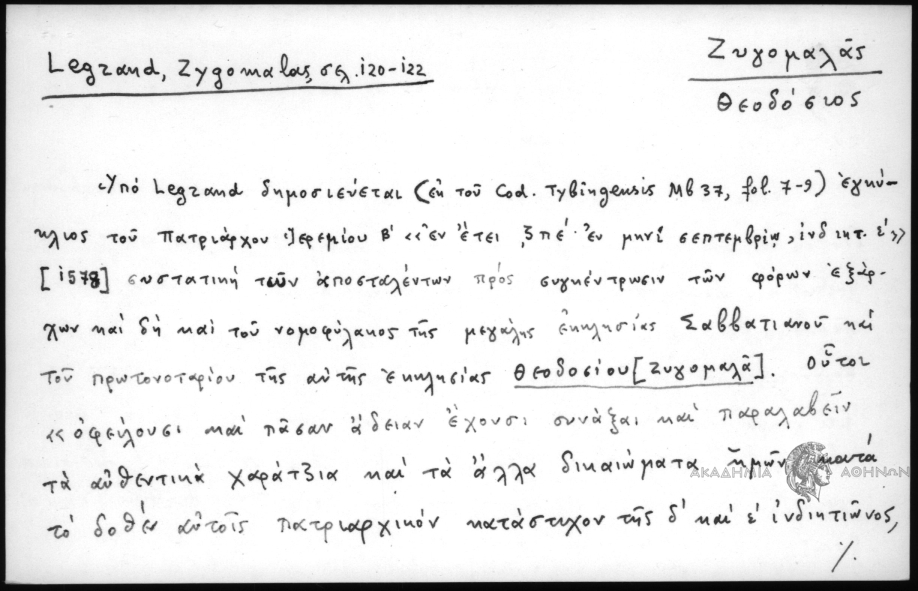 Legrand, Zygomalas, σελ. 120-122
Ζυγομαλᾶς
Θεοδόσιος
Ὑπό Legrand δημοσιεύεται (ἐκ τοῦ Cod. Tybingensis Mb 37, fol. 7-9) ἐγκύ-
κλιος τοῦ Πατριάρχου Ἱερεμίου Β' «ἐν ἔτει ζπέ· ἐν μηνί σεπτεμβρίῳ, ἰνδικτ. ἑ»
[1578] συστατική τῶν ἀποσταλέντων πρός συγκέντρωσιν τῶν φόρων ἐξάρ-
χων καί δή καί τοῦ νομοφύλακος τῆς μεγάλης ἐκκλησίας Σαββατιανοῦ καί
τοῦ πρωτονοταρίου τῆς αὐτῆς ἐκκλησίας Θεοδοσίου [Ζυγομαλᾶ]. Οὗτοι
«ὀφείλουσι καί πᾶσαν ἄδειαν ἔχουσι συνάξαι καί παραλαβεῖν
τά αὐθεντικά χαράτζια καί τά ἄλλα δικαιώματα ἡμῶν κατά
τό δοθέν αὐτοῖς πατριαρχικόν κατάστυχον τῆς δ' καί ε' ἰνδικτιῶνος,
./.
ΑΚΑΔΗΜΙΑ ΑΘΗΝΩΝ